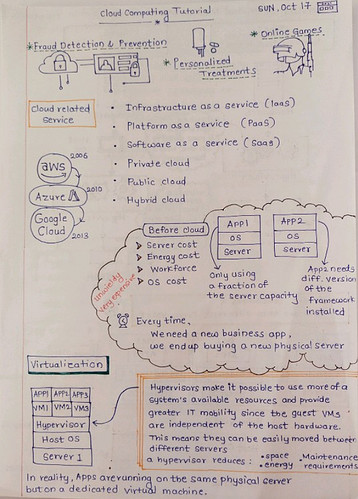 Cloud Computing Tutorial
SUN, Oct 17
*Fraud Detection & Prevention
*Personalized
Treatments
*Online Games
Cloud related
Service
• Infrastructure as a service (IaaS)
• Platform as a service (PaaS)
• Software as a service (SaaS)
• Private cloud
• Public cloud
• Hybrid cloud
aws
2006
Azure
2010
Google
Cloud
2013
Before cloud
Server cost
Energy cost
Workforce
OS cost
unwieldy
very expensive
App1
OS
Server
App2
OS
Server
Only using
a fraction of
the server capacity
App2 needs
diff. version
of the
framework
installed
Every time,
We need a new business app,
we end up buying a new physical server
Virtualization
App1 App2 App3
VM1 VM2 VM3
Hypervisor
Host OS
Server 1
Hypervisors make it possible to use more of a
system's available resources and provide
greater IT mobility since the guest VMs
are independent of the host hardware.
This means they can be easily moved between
different servers
a hypervisor reduces: • space • Maintenance
• energy requirements
In reality, Apps are running on the same physical server
but on a dedicated virtual machine.